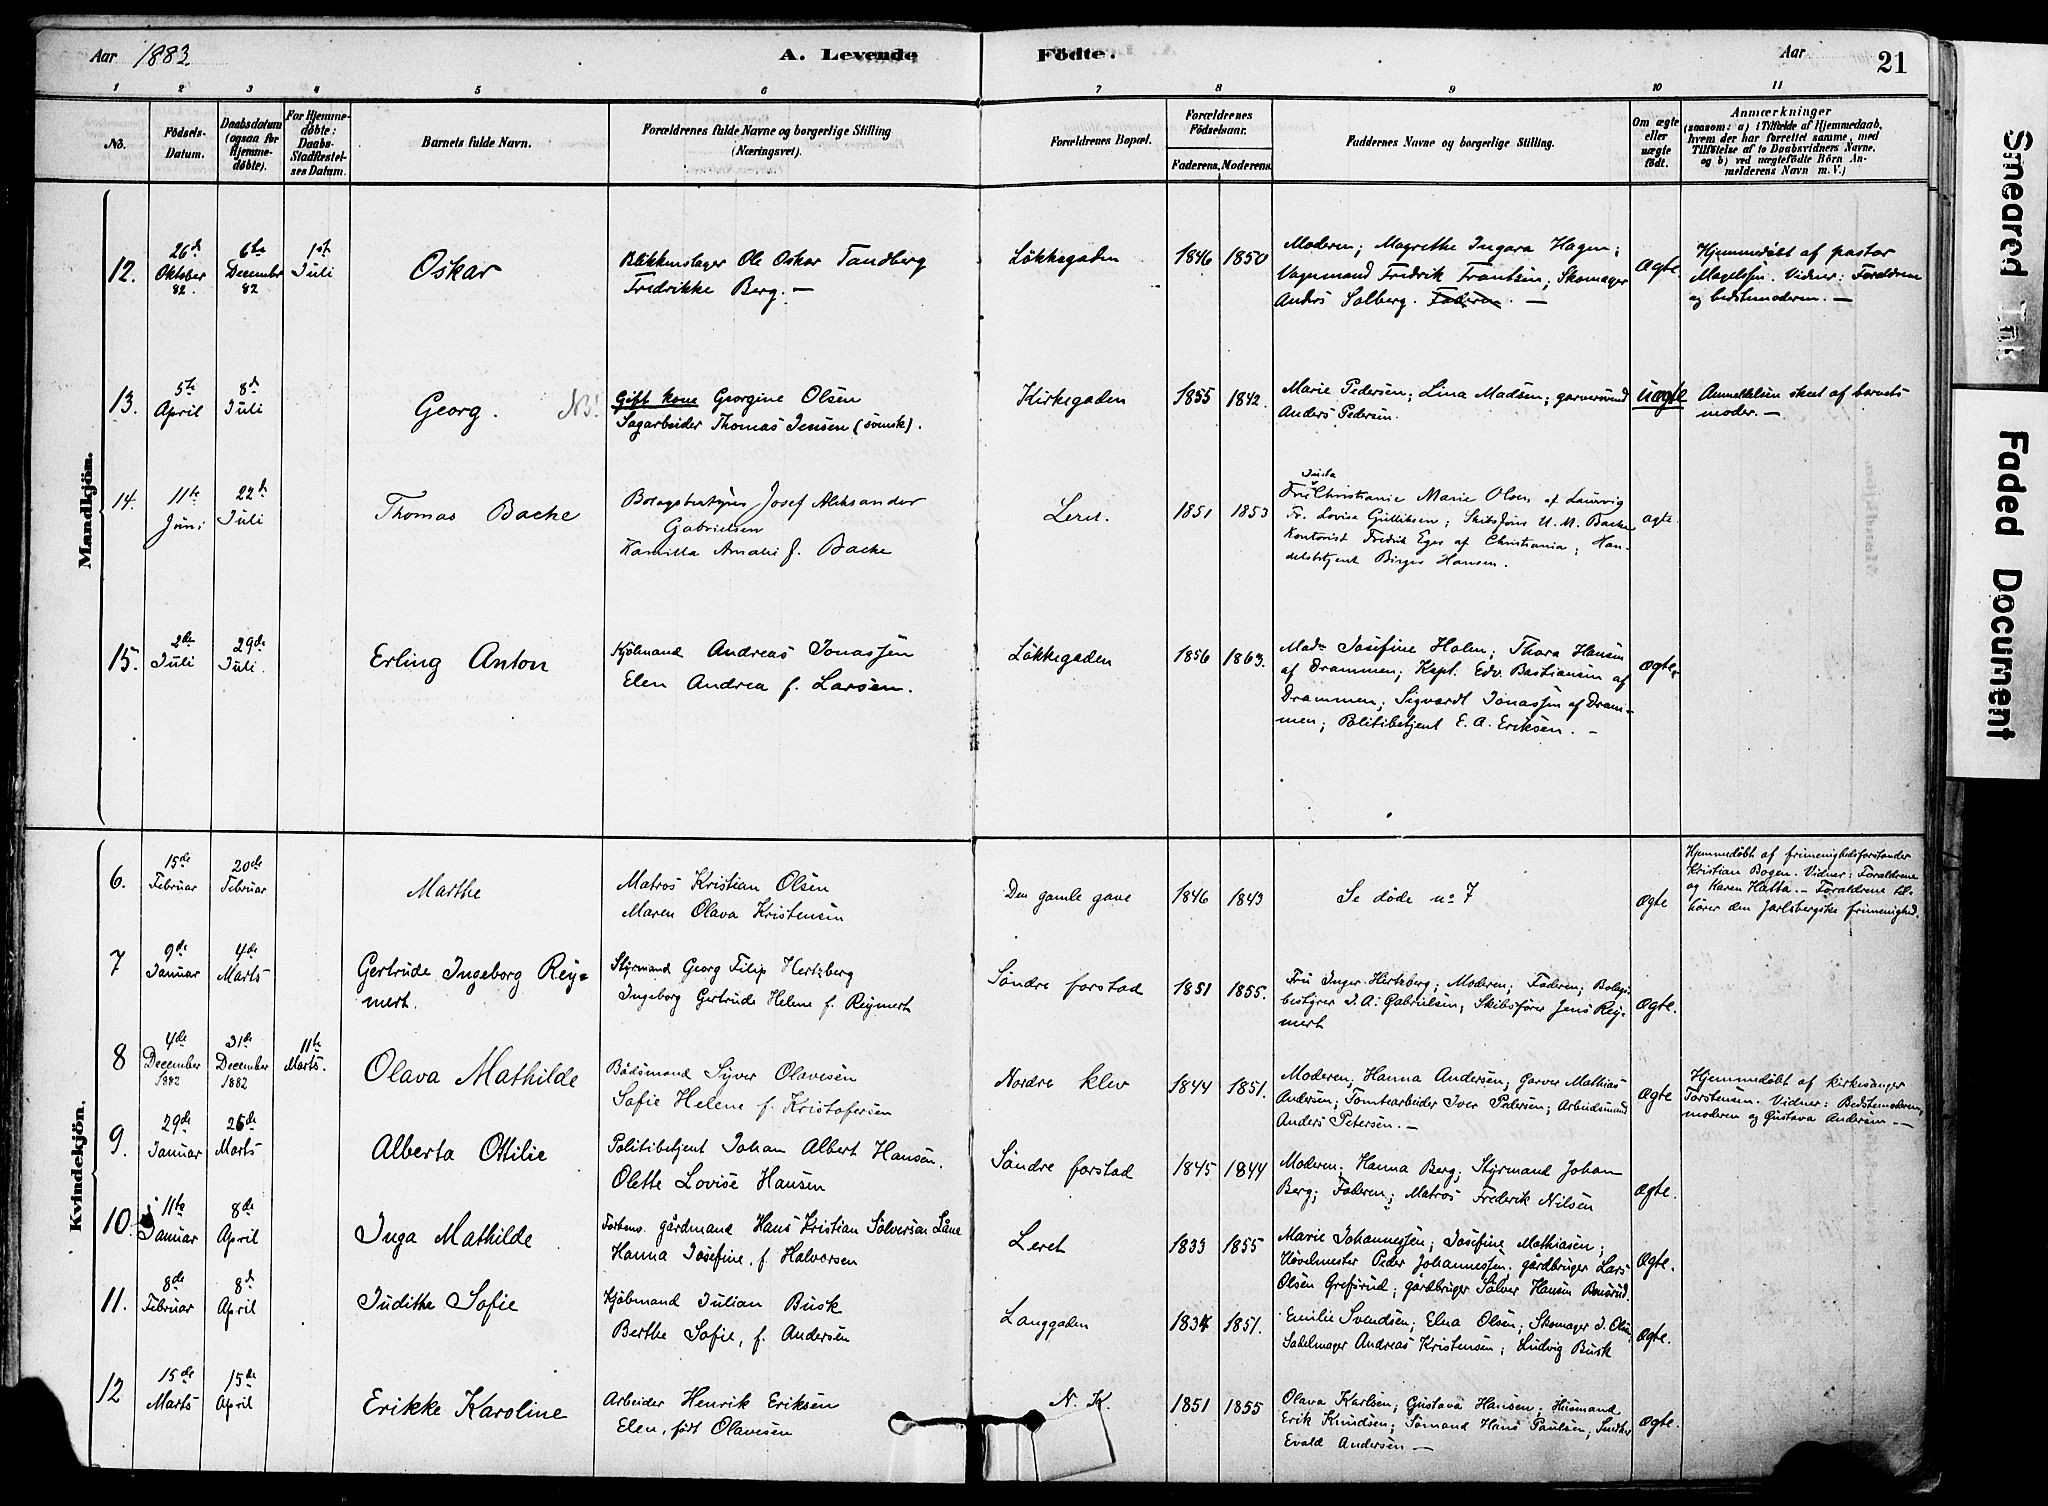 Aar 1883.
A. Levende Födte.
Aar
21
1 2 3 4 5 6 7 8 9 10 11
No.
Födsels-Datum.
Daabsdatum (ogsaa for Hjemme-döbte).
For Hjemme-döbte: Daabs-Stadfæstel-ses Datum.
Barnets fulde Navn.
Forældrenes fulde Navne og borgerlige Stilling (Næringsvei).
Forældrenes Bopæl.
Forældrenes Födselsaar.
Faderens. Moderens.
Faddernes Navne og borgerlige Stilling.
Om ægte eller uægte födt.
Anmærkninger
(saasom: a) i Tilfælde af Hjemmedaab,
hvem der har forrettet samme, med
Tilföielse af to Daabsvidners Navne.
og b) ved uægtefödte Börn An-
melderens Navn m. V.)
Mandkjön.
12. 26de Oktober 82. 6te December 82 1ste Juli
Oskar
Blikkenslager Ole Oskar Tandberg
Fredrikke Berg. —
Løkkegaden 1846 1850
Moderen; Magrethe Ingara Hagen;
Vognmand Fredrik Frantsen; Skomager
Anders Solberg. Faderen. —
Ægte
Hjemmedøbt af pastor
Magelsen. Vidner: Forældrene
og bedstemoderen. —
13. 5te April 8de Juli
Georg. NB!
Gift kone Georgine Olsen
Sagarbeider Thomas Jensen (svensk).
Kirkegaden 1855 1842.
Marie Pedersen; Lina Madsen; garversvend
Anders Pedersen.
uægte
Anmeldelsen skeet af barnets
moder. —
14. 11te Juni 22de Juli
Thomas Backe
Bolagsbestyrer Josef Aleksander
Gabrielsen
Kamilla Amalie f. Backe
Leret. 1851 1853
Fru Christianie Marie Olsen af Laurvig
Fr. Lovise Gulliksen; Skibsfører U. M. Backe
Kontorist Fredrik Eger af Christiania; Han-
delsbetjent Birger Hansen.
ægte.
15. 2de Juli 29de Juli.
Erling Anton
Kjøbmand Andreas Jonassen
Elen Andrea f. Larsen.
Løkkegaden 1856 1863.
Mad. Josefine Holm; Thora Hansen
af Drammen; Kapt. Edv. Bastiansen af
Drammen; Sigvardt Jonassen af Dram-
men; Politibetjent E. A. Eriksen. —
ægte
Kvindekjön.
6. 15de Februar 20de Februar
Marthe
Matros Kristian Olsen
Maren Olava Kristensen
Den gamle gave 1846 1843
Se døde no 7
Ægte
Hjemmedøbt af frimenighedsforstander
Kristian Bogen. Vidner: Forældrene
og Karen Hatta. — Forældrene til-
hører den Jarlsbergske frimenighed.
7 9de Januar 4de Marts
Gertrude Ingeborg Rey-
mert.
Styrmand Georg Filip Hertzberg
Ingeborg Gertrude Helene f. Reymert
Søndre forstad 1851 1855.
Fru Inger Hertzberg; Moderen; Faderen; Bolags-
bestyrer J. A. Gabrielsen; Skibsfører Jens Rey-
mert
Ægte.
8 4de December 1882 31de December 1882 11te Marts.
Olava Mathilde
Bådsmand Syver Olavesen
Sofie Helene f. Kristofersen
Nordre klev 1844 1851.
Moderen; Hanna Andersen; Garver Mathias
Andersen; Tomtearbeider Iver Pedersen; Arbeidsmand
Anders Petersen. —
Ægte
Hjemmedøbt af kirkesanger
Torstensen. Vidner: Bedstemoderen,
moderen og Gustava Andersen. —
9. 29de Januar 26de Marts
Alberta Ottilie
Politibetjent Johan Albert Hansen.
Olette Lovise Hansen
Søndre forstad 1845 1844
Moderen; Hanna Berg; Styrmand Johan
Berg; Faderen; Matros Frederik Nilsen
Ægte.
10. 11te Januar 8de April
Inga Mathilde
Fortenv. gårdmand Hans Kristian Sølversøn Låne
Hanna Josefine, f. Halvorsen
Leret 1833 1855
Marie Johannessen; Josefine Mathiasen;
Høvelmester Peder Johannessen. gårdbruger Lars
Olsen Grefsrud; gårdbruger Sølver Hansen Bonsrud.
Ægte.
11. 8de Februar 8de April
Judithe Sofie
Kjøbmand Julian Busk
Berthe Sofie, f. Andersen
Langgaden 1834 1851.
Emilie Svendsen; Elna Olsen; Skomager J. Olsen
Sadelmager Andreas Kristensen; Ludvig Busk
Ægte.
12 15de Marts 15de April
Erikke Karoline
Arbeider Henrik Eriksen
Elen, født Olavesen
N. K. 1851 1855
Olava Karlsen; Gustava Hansen; Husmand
Erik Knudsen; Sømand Hans Paulsen; Snedker
Evald Andersen —
Ægte.
Smeared Ink
Faded Document